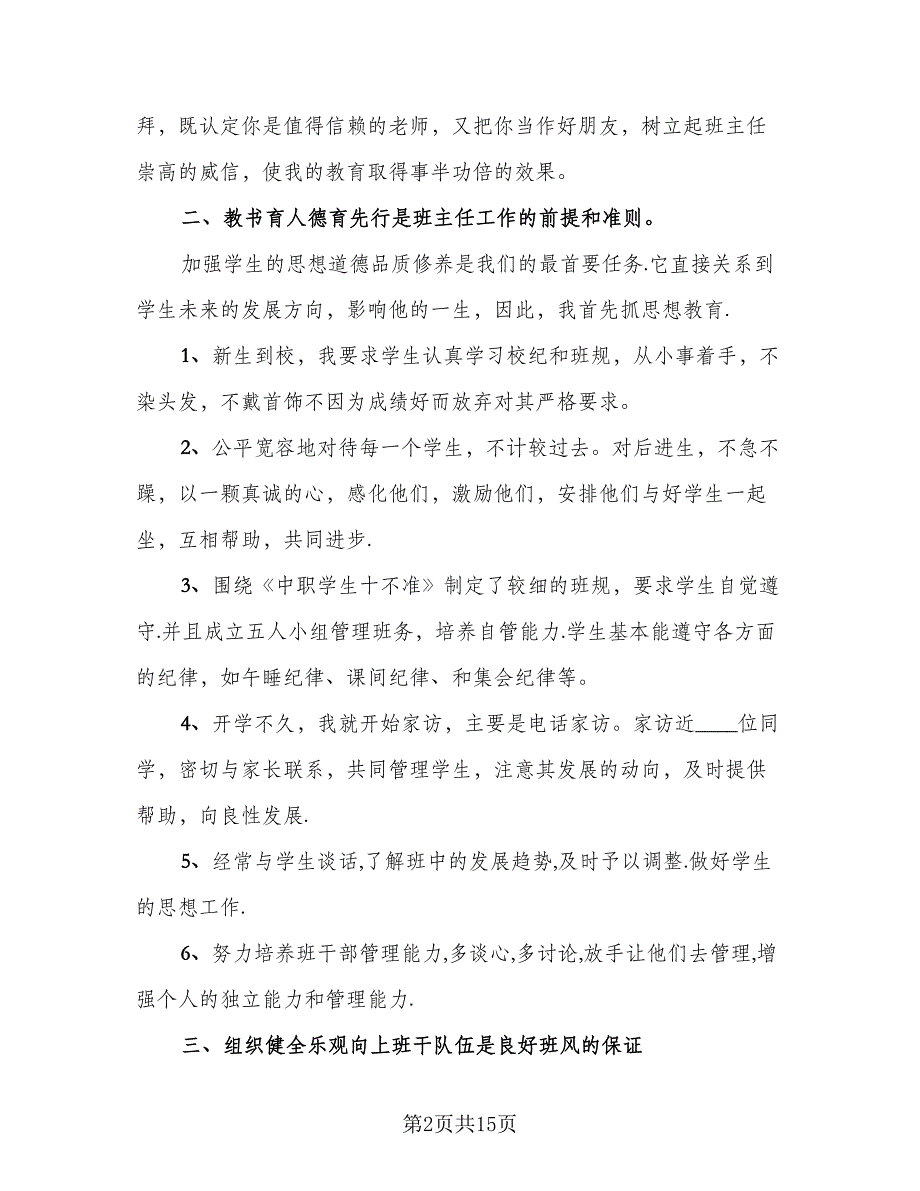 拜，既认定你是值得信赖的老师，又把你当作好朋友，树立起班主任
崇高的威信，使我的教育取得事半功倍的效果。
二、教书育人德育先行是班主任工作的前提和准则。
加强学生的思想道德品质修养是我们的最首要任务.它直接关系到
学生未来的发展方向，影响他的一生，因此，我首先抓思想教育.
1、新生到校，我要求学生认真学习校纪和班规，从小事着手，不
染头发，不戴首饰不因为成绩好而放弃对其严格要求。
2、公平宽容地对待每一个学生，不计较过去。对后进生，不急不
躁，以一颗真诚的心，感化他们，激励他们，安排他们与好学生一起
坐，互相帮助，共同进步.
3、围绕《中职学生十不准》制定了较细的班规，要求学生自觉遵
守.并且成立五人小组管理班务，培养自管能力.学生基本能遵守各方面
的纪律，如午睡纪律、课间纪律、和集会纪律等。
4、开学不久，我就开始家访，主要是电话家访。家访近____位同
学，密切与家长联系，共同管理学生，注意其发展的动向，及时提供
帮助，向良性发展.
5、经常与学生谈话,了解班中的发展趋势,及时予以调整.做好学生
的思想工作.
6、努力培养班干部管理能力,多谈心,多讨论,放手让他们去管理,增
强个人的独立能力和管理能力.
三、组织健全乐观向上班干队伍是良好班风的保证
第2页共15页